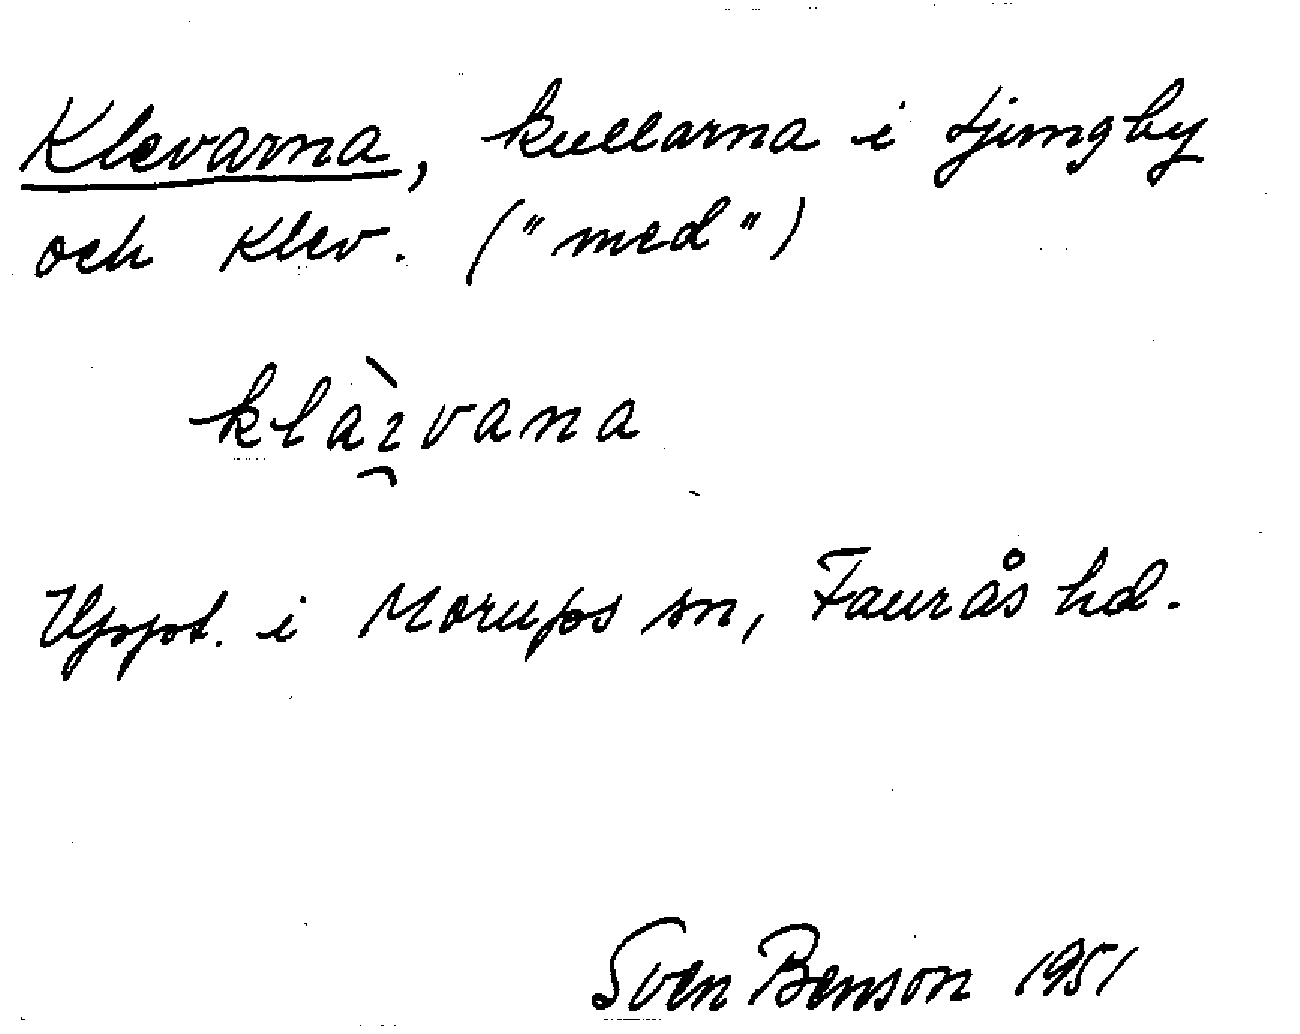 Klevarna, kullarna i Ljungby
och Klev. ("med")
klàɪ̯vana
Uppt. i Morups sn, Faurås hd.
Sven Benson 1951